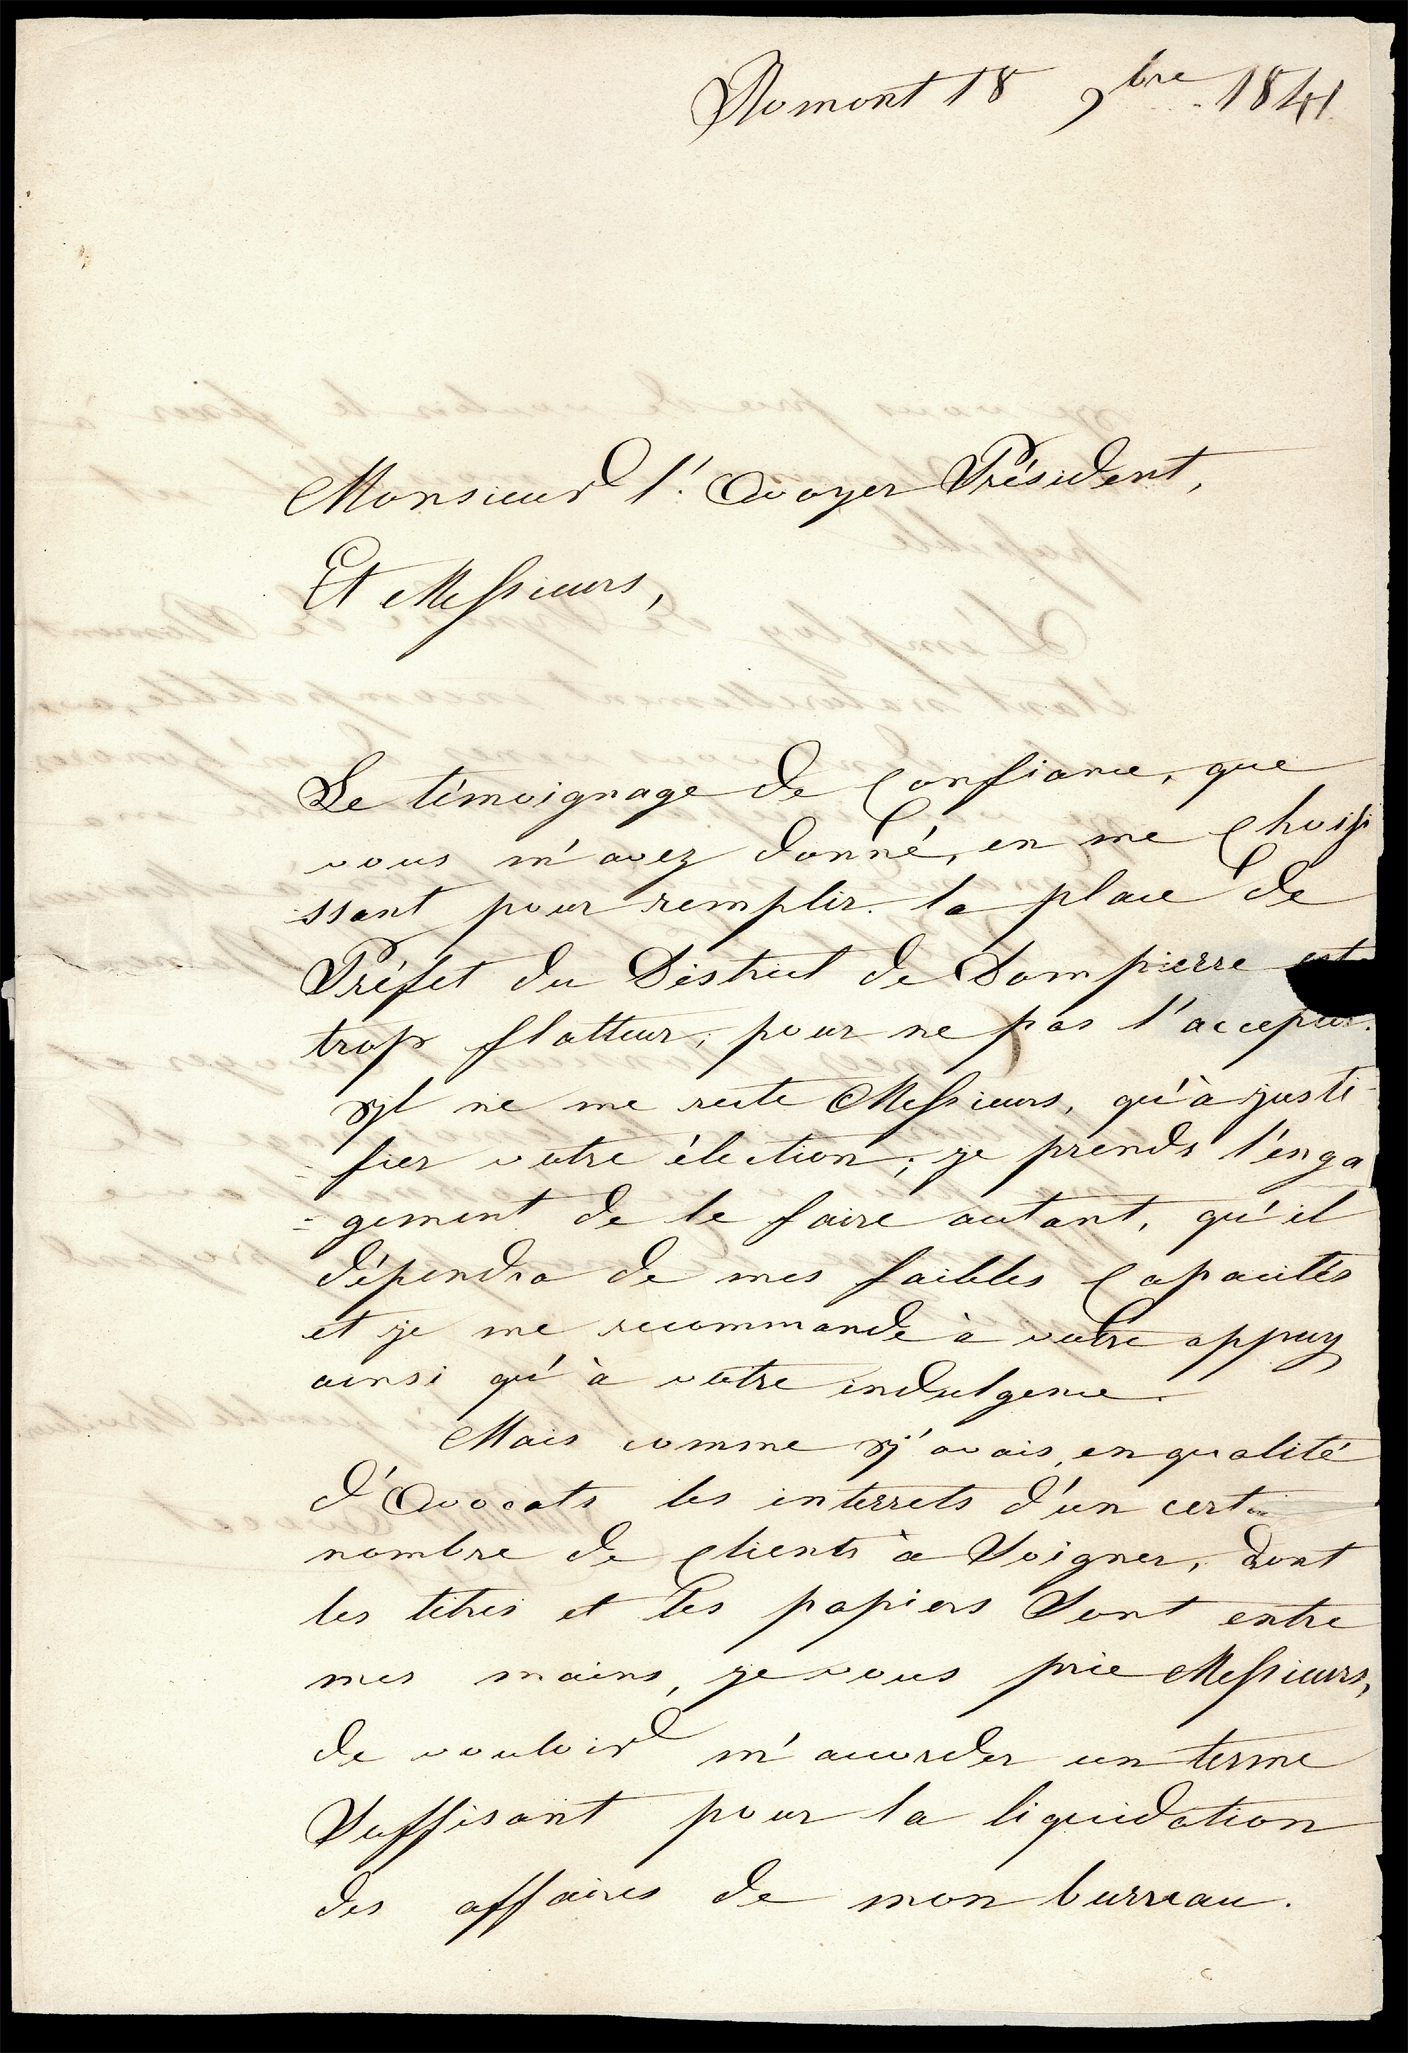 Romont 18 9bre 1841.
Monsieur l'Avoyer Président,
Et Messieurs,
Le témoignage de Confiance, que
vous m'avez donné, en me Choisi
ssant pour remplir la place de
Préfet du District de Dompierre est
trop flatteur, pour ne pas l'accepter.
Il ne me reste Messieurs, qu'à justi
= fier votre élection; je prends l'énga
= gement de le faire autant, qu'il
dépendra de mes faibles Capacités
et je me recommande à votre appuy
ainsi qu'à votre indulgence.
Mais comme j'avais, en qualité
d'Avocats les interrets d'un certain
nombre de Clients à Soigner, dont
les titres et les papiers Sont entre
mes mains, je vous prie Messieurs,
de vouloir m'accorder un terme
Suffisant pour la liquidation
des affaires de mon burreau.